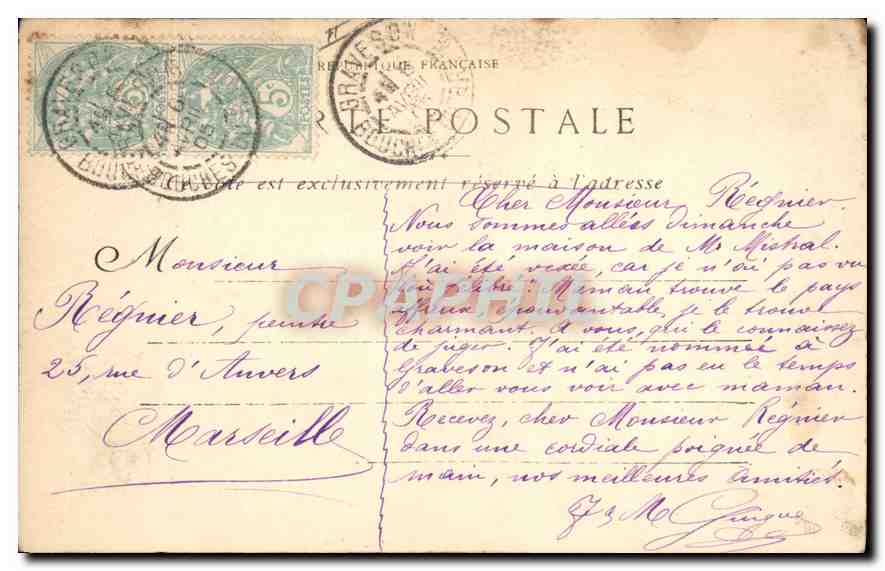 RÉPUBLIQUE FRANÇAISE
POSTALE
est exclusivement réservé à l'adresse
GRAVESON
BOUCHES
5c
POSTES
Monsieur
Régnier, peintre
25, rue d'Anvers
Marseille
Cher Monsieur Régnier.
Nous sommes allés dimanche
voir la maison de Mr Mistral.
J'ai été vexée, car je n'ai pas vu
Maman trouve le pays
affreux épouvantable, je le trouve
charmant. A vous, qui le connaissez
de juger. J'ai été nommée à
Graveson et n'ai pas eu le temps
d'aller vous voir avec maman.
Recevez, cher Monsieur Régnier
dans une cordiale poignée de
main, nos meilleures amitiés.
CPAPHIL